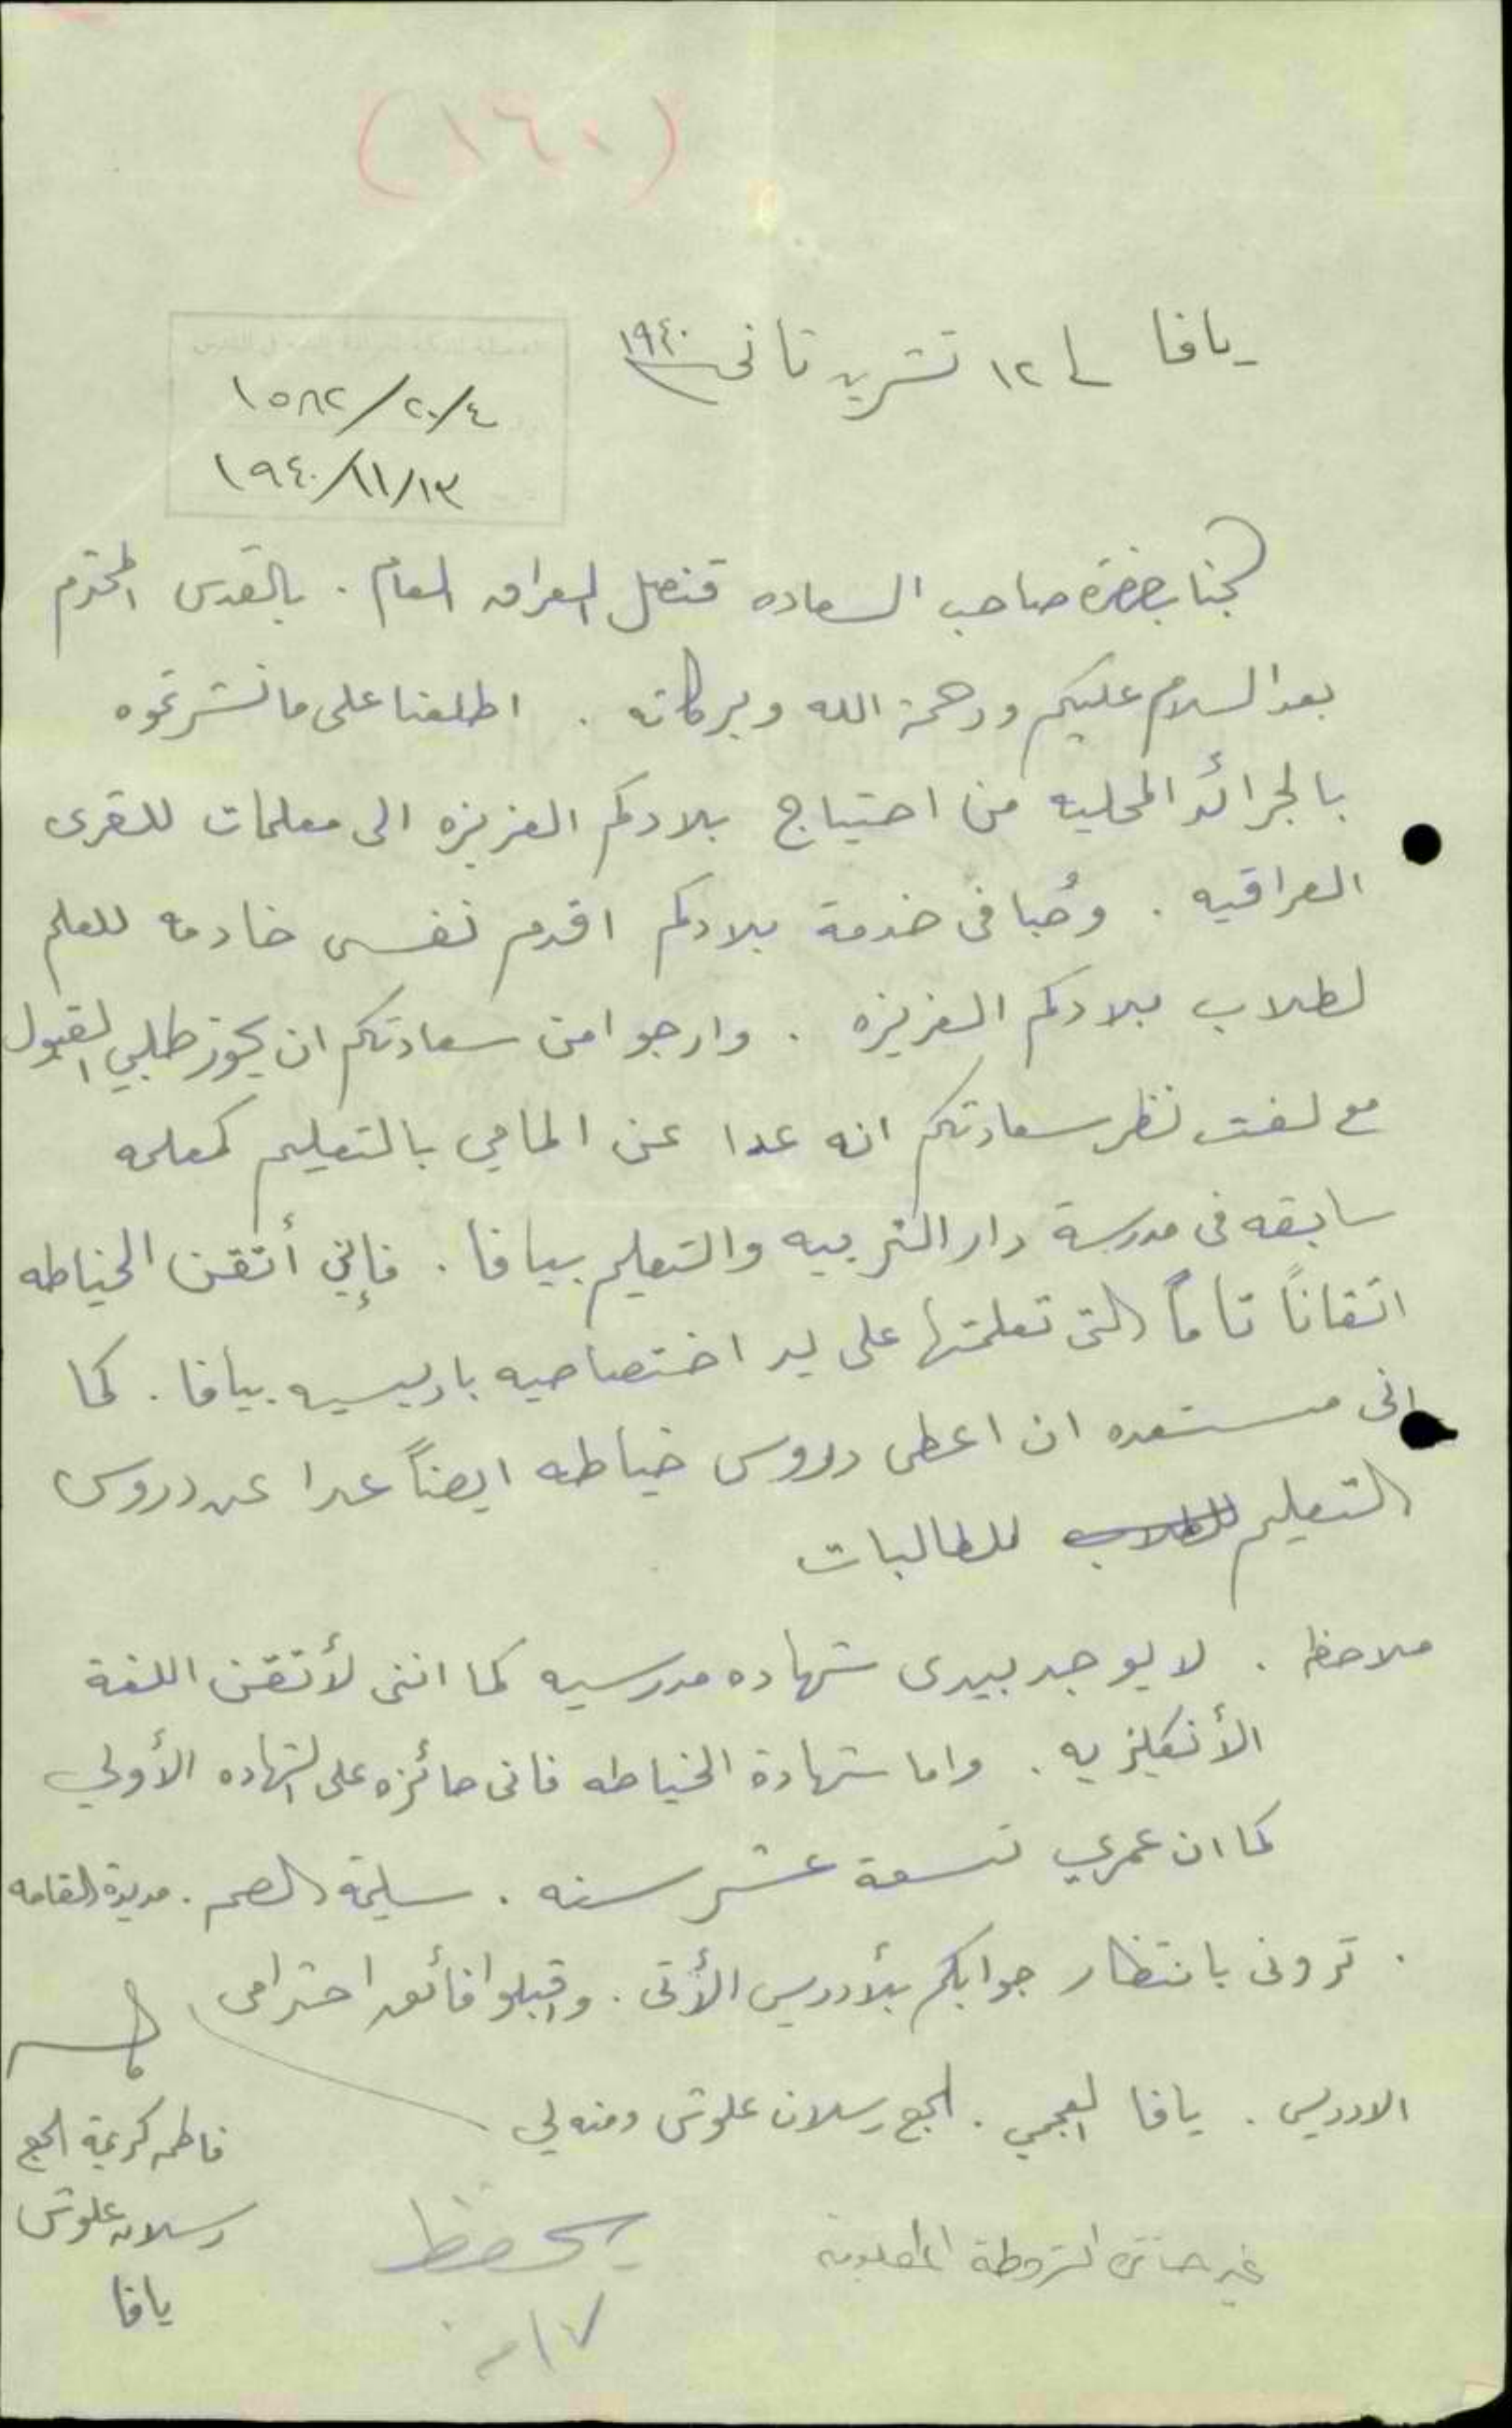 (١٦٠)
يافا في ١٢ تشرين ثاني ١٩٤٠
١٥٨٢/٢٠/٤
١٩٤٠/١١/١٣
لجناب حضرة صاحب السعاده قنصل العراق العام . بالقدس المحترم
بعد السلام عليكم ورحمة الله وبركاته . اطلعنا على ما نشرتموه
بالجرائد المحليه من احتياج بلادكم العزيزه الى معلمات للقرى
العراقيه . وحُبا فى خدمة بلادكم اقدم نفسى خادمه للعلم
لطلاب بلادكم العزيزه . وارجوا من سعادتكم ان يحوز طلبي القبول
مع لفت نظر سعادتكم انه عدا عن المامي بالتعليم كمعلمه
سابقه فى مدرسة دار التربيه والتعليم بيافا . فإني أتقن الخياطه
اتقاناً تاماً التى تعلمتها على يد اختصاصيه باريسيه بيافا . كما
انى مستعده ان اعطى دروس خياطه ايضاً عدا عن دروس
التعليم للطلاب للطالبات
ملاحظه . لا يوجد بيدى شهاده مدرسيه كما اننى لأتقن اللغة
الأنكليزيه . واما شهادة الخياطه فانى حائزه على الشهاده الأولى
كما ان عمري تسعة عشر سنه . سليمة الجسم . مديدة القامه
. ترونى بانتظار جوابكم بلأدريس الأتى . واقبلوا فائق احترامى
الادريس . يافا العجمي . الحج رسلان علوش ومنه لي
فاطمه كريمة الحج
رسلان علوش
يافا
غير حائزة الشروط المطلوبة
يحفظ